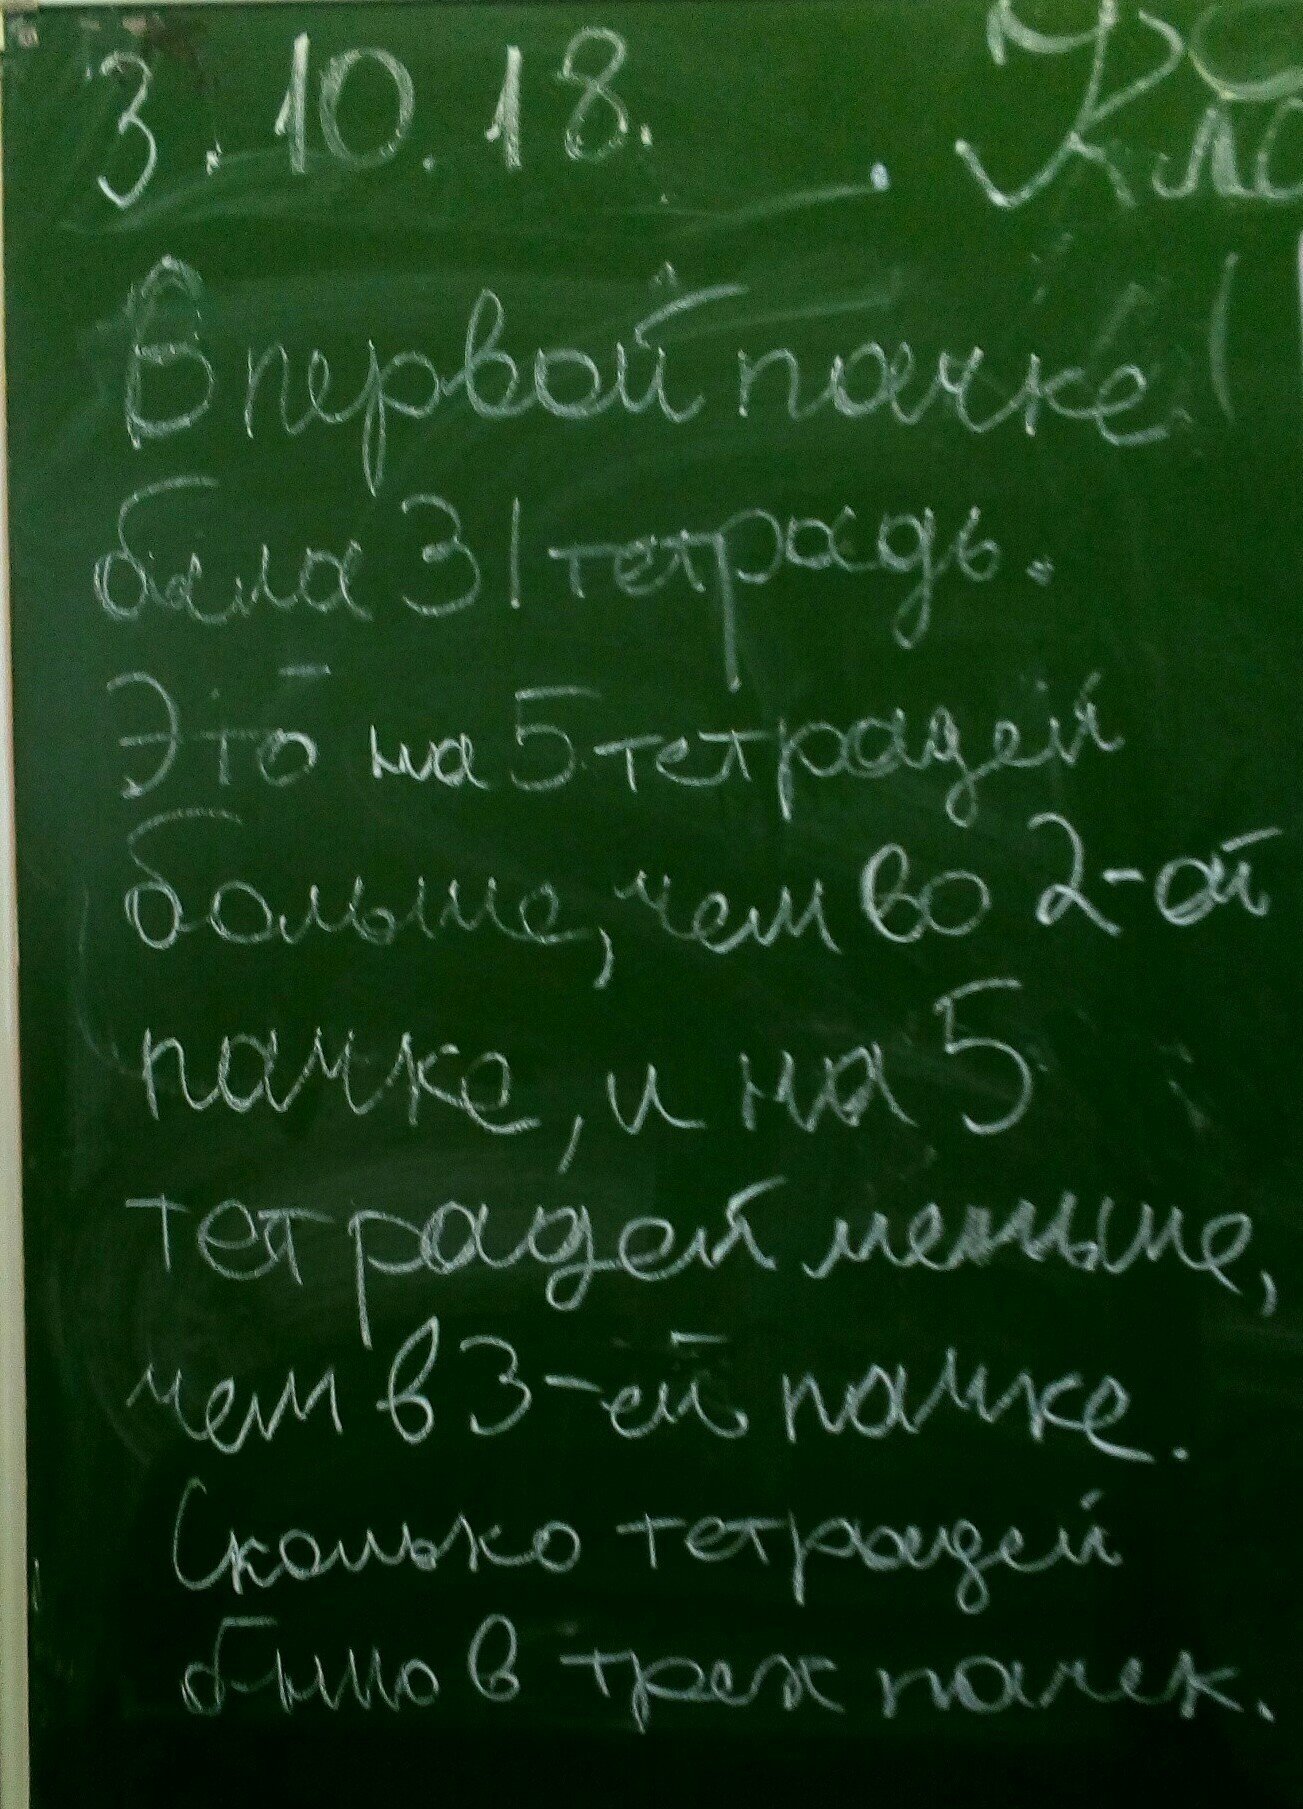 3.10.18. . Кла
В первой пачке
была 31 тетрадь.
Это на 5 тетрадей
больше, чем во 2-ой
пачке, и на 5
тетрадей меньше,
чем в 3-ей пачке.
Сколько тетрадей
было в трех пачек.